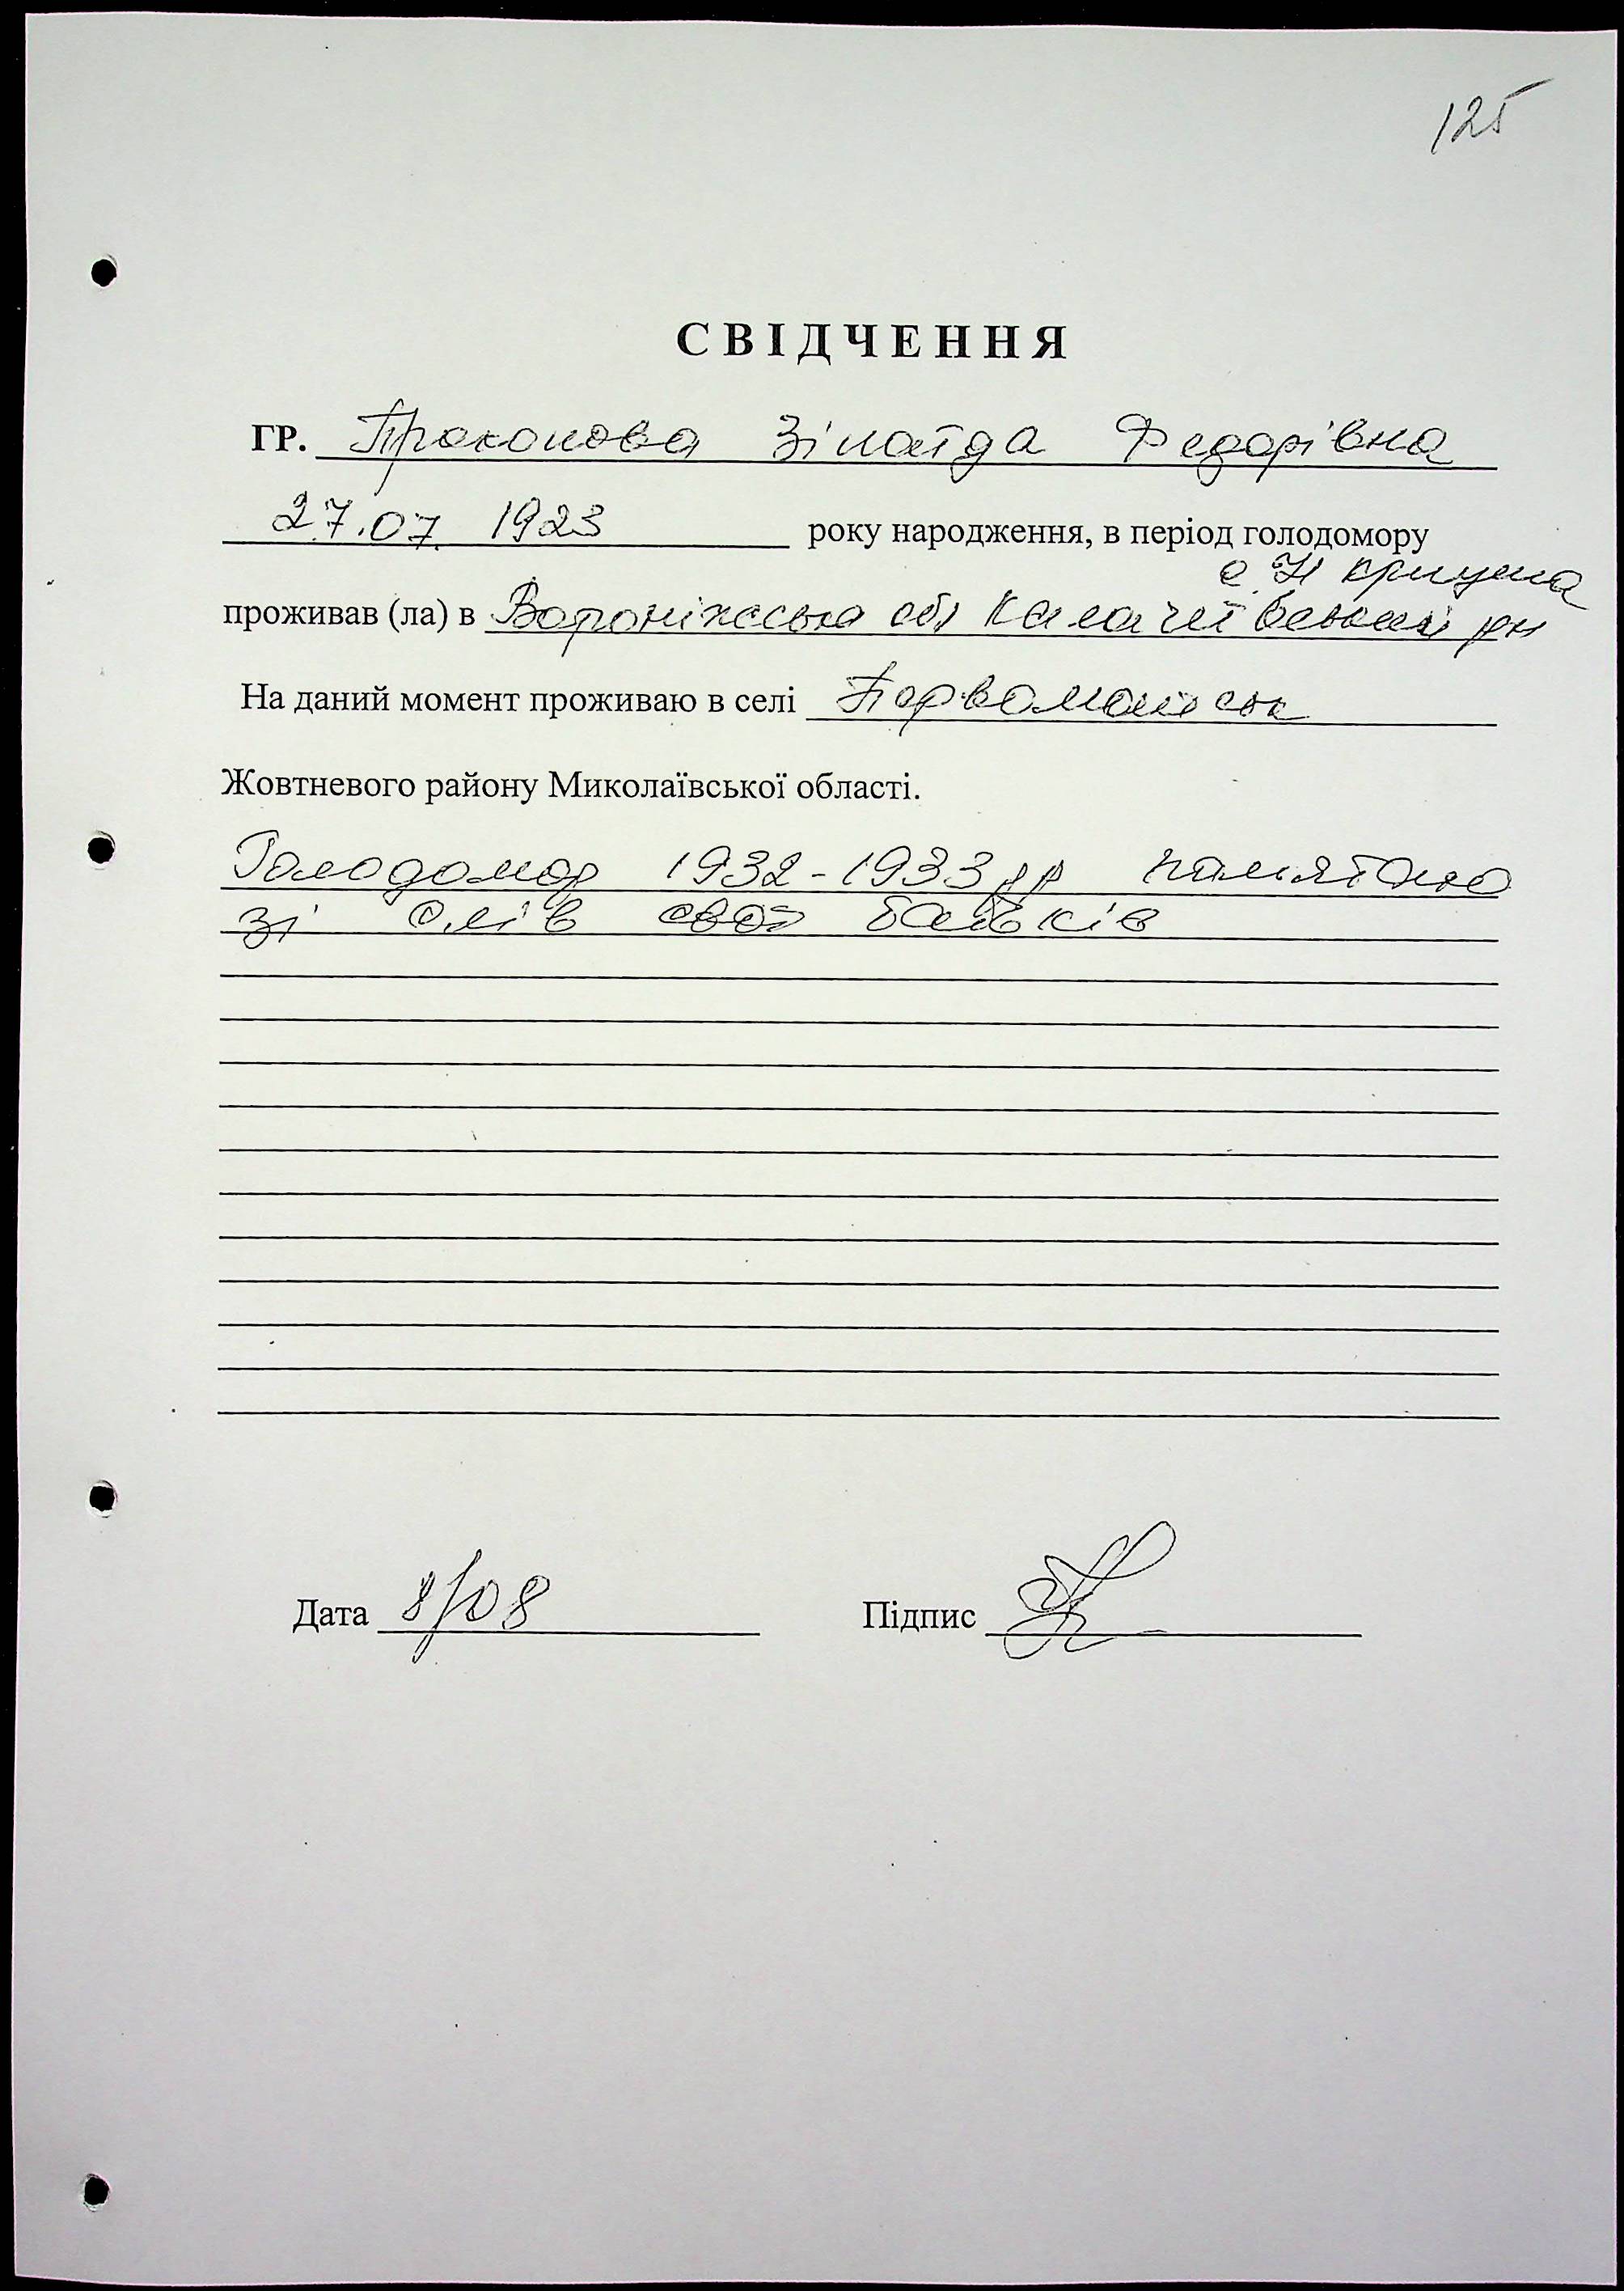 125
СВІДЧЕННЯ
ГР. Прокопова Зінаїда Федорівна
27.07. 1923 року народження, в період голодомору
с. Н криуша
проживав (ла) в Вороніжська обл Калачеївський рн
На даний момент проживаю в селі Первомайськ
Жовтневого району Миколаївської області.
Голодомор 1932-1933 рр памятаю
зі слів своїх батьків
Дата 8/08 Підпис